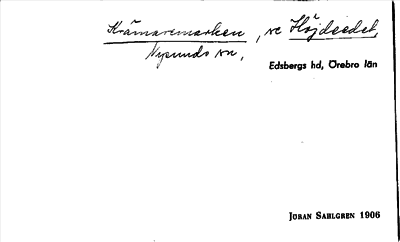 Krämaremarken, se Höjdeedet,
Nysunds sn,
Edsbergs hd, Örebro län
Jöran Sahlgren 1906